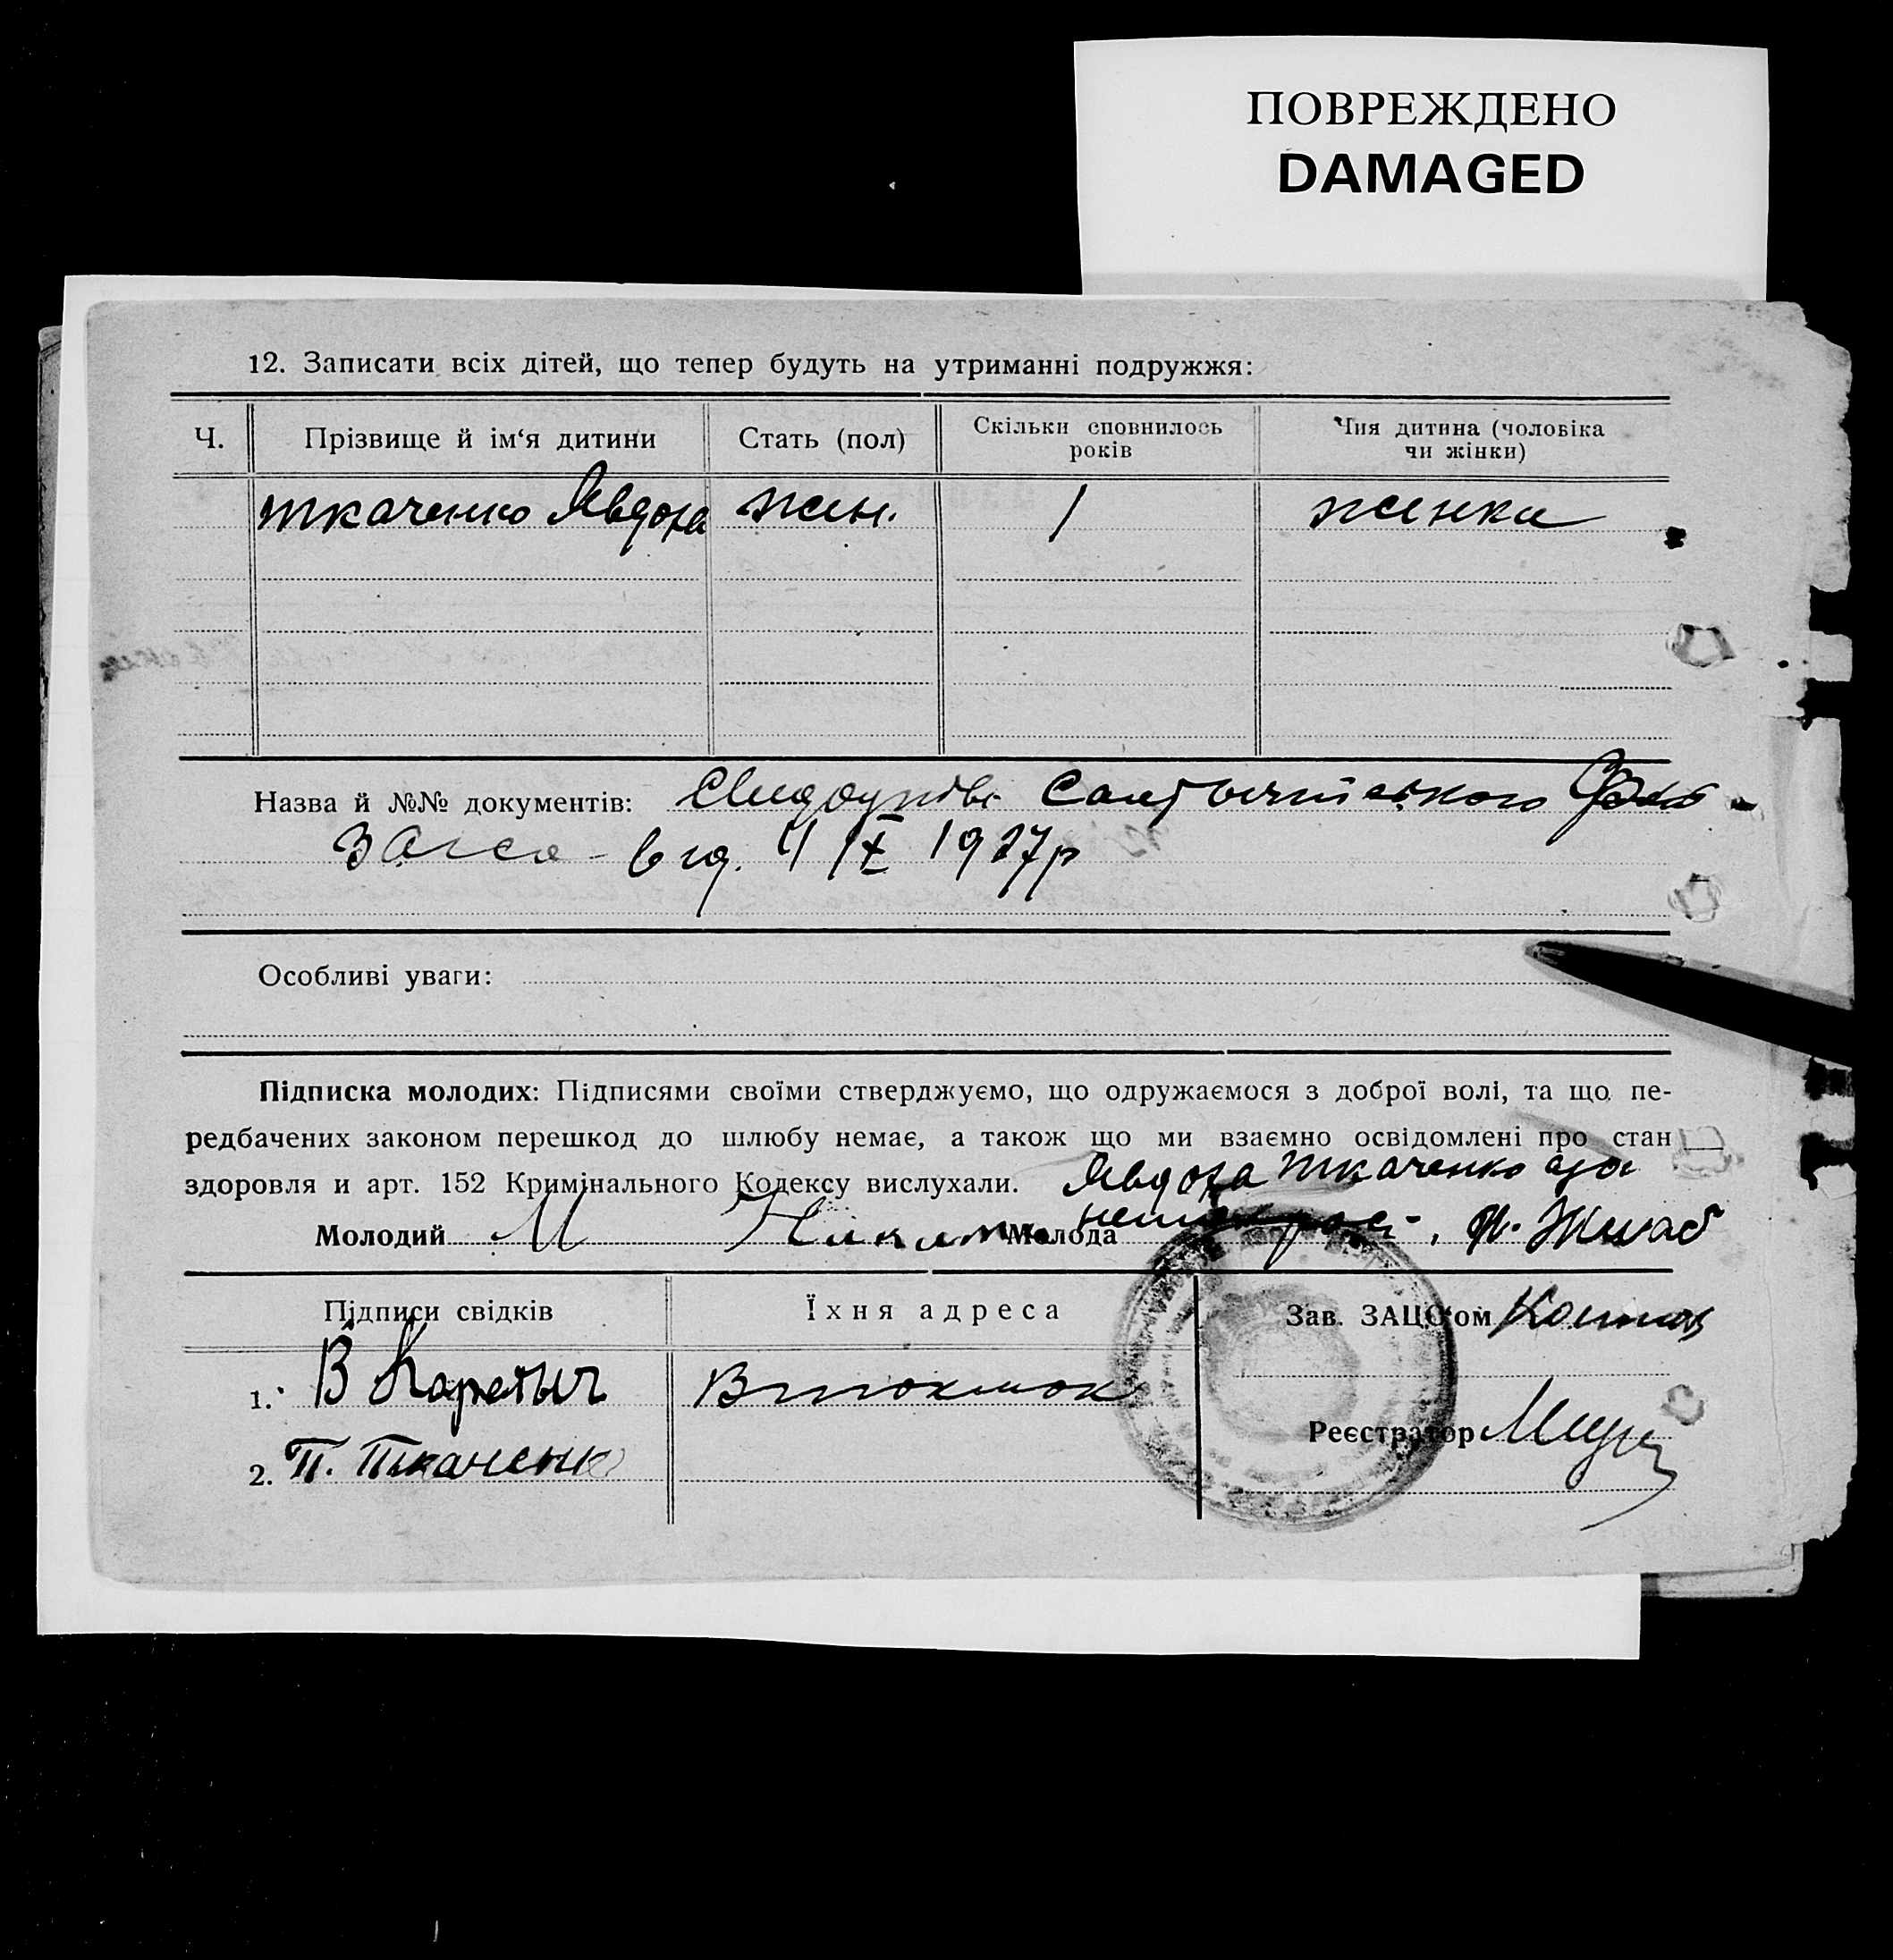 ПОВРЕЖДЕНО
DAMAGED
12. Записати всіх дітей, що тепер будуть на утриманні подружжя:
Ч. Прізвище й ім‘я дитини Стать (пол) Скільки сповнилось років Чия дитина (чоловіка чи жінки)
Ткаченко Явдоха жен. 1 женки
Назва й №№ документів:
Загса 1927р
Особливі уваги:
Підписка молодих: Підписями своїми стверджуємо, що одружаємося з доброї волі, та що пе-
редбачених законом перешкод до шлюбу немає, а також що ми взаємно освідомлені про стан
здоровля и арт. 152 Кримінального Кодексу вислухали. Явдоха Ткаченко
Молодий М Молода
Підписи свідків Їхня адреса Зав. ЗАЦС‘ом
1. В
В токмак
Реєстратор
2. П. Ткаченко